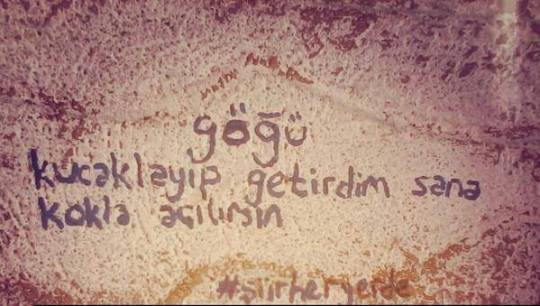 göğü
kucaklayıp getirdim sana
kokla açılırsın
#şiirheryerde